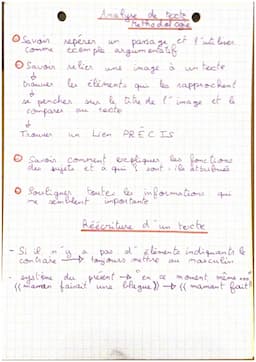 Analyse de texte
Méthodologie
Savoir repérer un passage et l'utiliser
comme exemple argumentatif
Savoir relier une image à un texte
↓
trouver les éléments qui les rapprochent
se pencher sur le titre de l'image et le
comparer au texte
↓
Trouver un lien PRÉCIS
Savoir comment expliquer les fonctions
des sujets et à qui sont-ils attribués
Souligner toutes les informations qui
me semblent importante
Réécriture d'un texte
- Si il n'y a pas d'éléments indiquants le
contraire → toujours mettre au masculin
- système du présent → "en ce moment même..."
((maman faisait une blague)) → ((maman fait